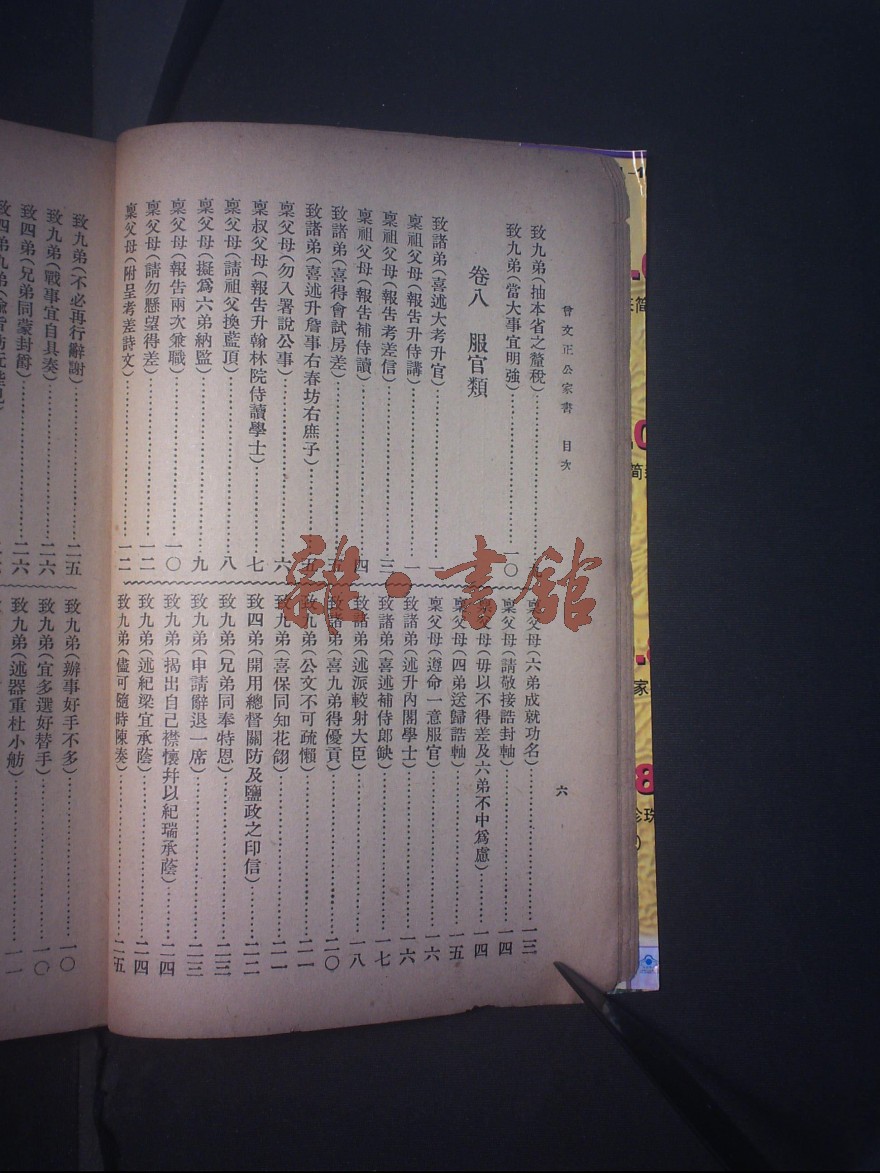 曾文正公家書　目次
六
致九弟（抽本省之釐稅）
致九弟（當大事宜明強）……一〇
卷八　服官類
致諸弟（喜述大考升官）……一
稟祖父母（報告升侍講）……一
稟祖父母（報告考差信）……三
稟祖父母（報告補侍讀）……四
致諸弟（喜得會試房差）……五
致諸弟（喜述升詹事右春坊右庶子）……五
稟父母（勿入署說公事）……六
稟叔父母（報告升翰林院侍讀學士）……七
稟父母（請祖父換藍頂）……八
稟父母（擬爲六弟納監）……九
稟父母（報告兩次兼職）……一〇
稟父母（請勿懸望得差）……一二
稟父母（附呈考差詩文）……一二
稟父母（六弟成就功名）……一三
稟父母（請敬接誥封軸）……一四
稟父母（毋以不得差及六弟不中爲慮）……一四
稟父母（四弟送歸誥軸）……一五
稟父母（遵命一意服官）……一六
致諸弟（述升內閣學士）……一六
致諸弟（喜述補侍郎缺）……一七
致諸弟（述派較射大臣）……一八
致諸弟（喜九弟得優貢）……二〇
致九弟（公文不可疏懶）……二一
致九弟（喜保同知花翎）……二一
致四弟（開用總督關防及鹽政之印信）……二二
致九弟（兄弟同奉特恩）……二三
致九弟（申請辭退一席）……二三
致九弟（揭出自己襟懷幷以紀瑞承蔭）……二四
致九弟（述紀梁宜承蔭）……二四
致九弟（儘可隨時陳奏）……二五
致九弟（不必再行辭謝）……二五
致九弟（戰事宜自具奏）……二六
致四弟（兄弟同蒙封爵）……二六
致四弟九弟
致九弟（辦事好手不多）……一〇
致九弟（宜多選好替手）……一〇
致九弟（述器重杜小舫）……一一
雜·書館